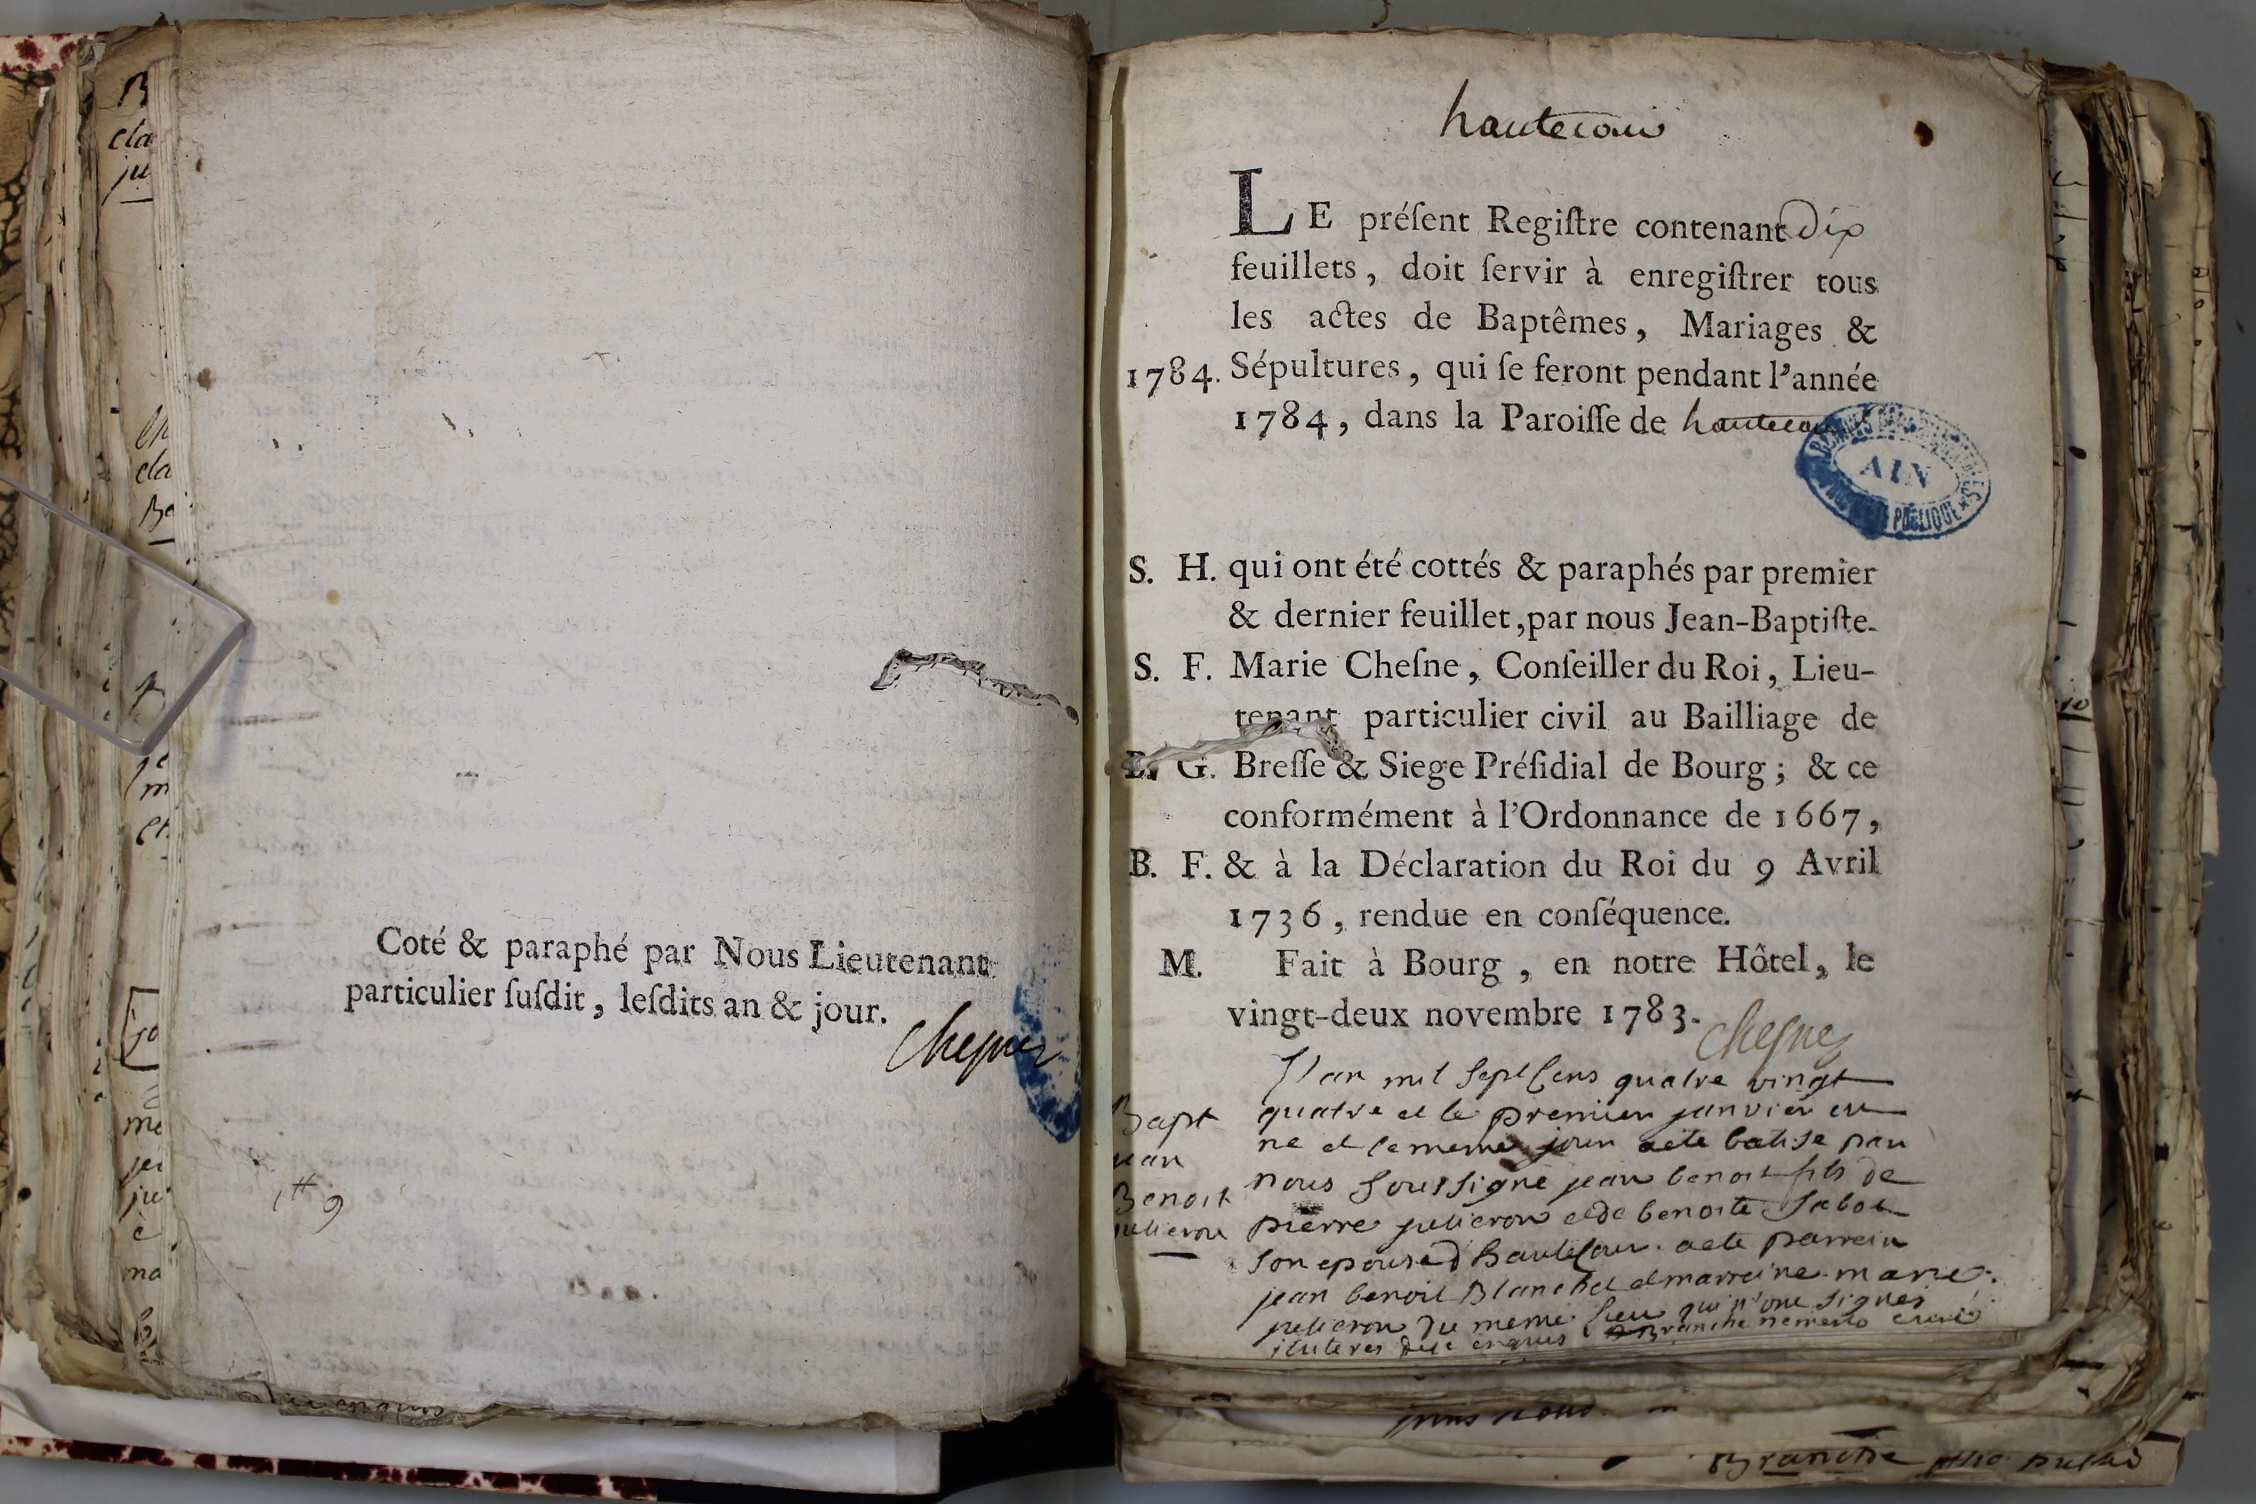 Coté & paraphé par Nous Lieutenant
particulier ſuſdit, leſdits an & jour.
Chesne
hautecour
LE préſent Regiſtre contenant Dix
feuillets, doit ſervir à enregiſtrer tous
les actes de Baptêmes, Mariages &
1784. Sépultures, qui ſe feront pendant l'année
1784, dans la Paroiſſe de hautecour
AIN
PUBLIQUE
S. H. qui ont été cottés & paraphés par premier
& dernier feuillet, par nous Jean-Baptiſte-
S. F. Marie Cheſne, Conſeiller du Roi, Lieu-
tenant particulier civil au Bailliage de
B. G. Breſſe & Siege Préſidial de Bourg; & ce
conformément à l'Ordonnance de 1667,
B. F. & à la Déclaration du Roi du 9 Avril
1736, rendue en conſéquence.
M. Fait à Bourg, en notre Hôtel, le
vingt-deux novembre 1783.
Chesne
L'an mil sept cens quatre vingt
quatre et le premier janvier en
ne et le meme jour aete batise par
nous soussigné jean benoit fils de
pierre jullieron et de benoite Sabot
son epouse d hautecour. aete parrein
jean benoit Blanchet et marreine marie
jullieron du meme lieu qui n'ont signés
Bapt
jean
Benoit
jullieron
Branche